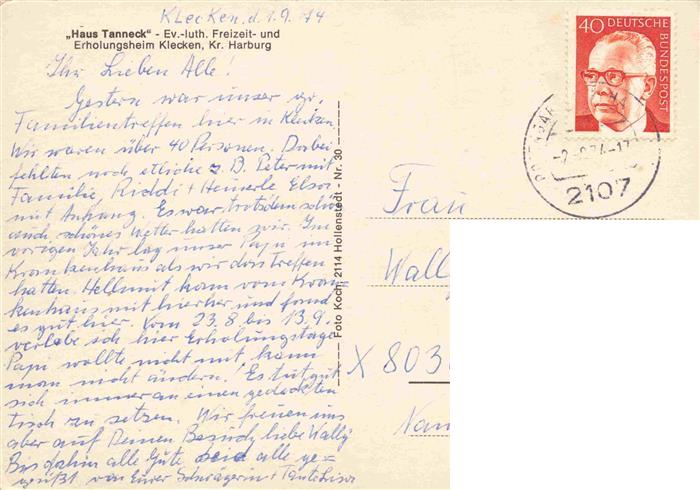 Klecken, d. 1.9.74
„Haus Tanneck" - Ev.-luth. Freizeit- und
Erholungsheim Klecken, Kr. Harburg
Ihr Lieben Alle!
Gestern war unser gr.
Familientreffen hier in Klecken.
Wir waren über 40 Personen. Dabei
fehlten noch etliche z. B. Peter mit
Familie, +
mit Anhang. Es war trotzdem schön
auch schönes Wetter hatten wir. Im
vorigen Jahr lag unser Papa im
Krankenhaus als wir das Treffen
hatten. Hellmut kam vom Kran-
kenhaus mit hierher und fand
es gut hier. Vom 23.8 bis 13.9.
verlebe ich hier Erholungstage
Papa wollte nicht mit, kann
man nicht ändern. Es tut gut
sich immer an einen gedeckten
Tisch zu setzen. Wir freuen uns
aber auf Deinen Besuch, liebe Wally
Bis dahin alle Gute seid alle ge=
grüßt von Eurer Schwägerin + Tante
Foto Koch, 2114 Hollenstedt - Nr. 30
40 DEUTSCHE
BUNDESPOST
74-17
2107
Frau
Wally
X 803